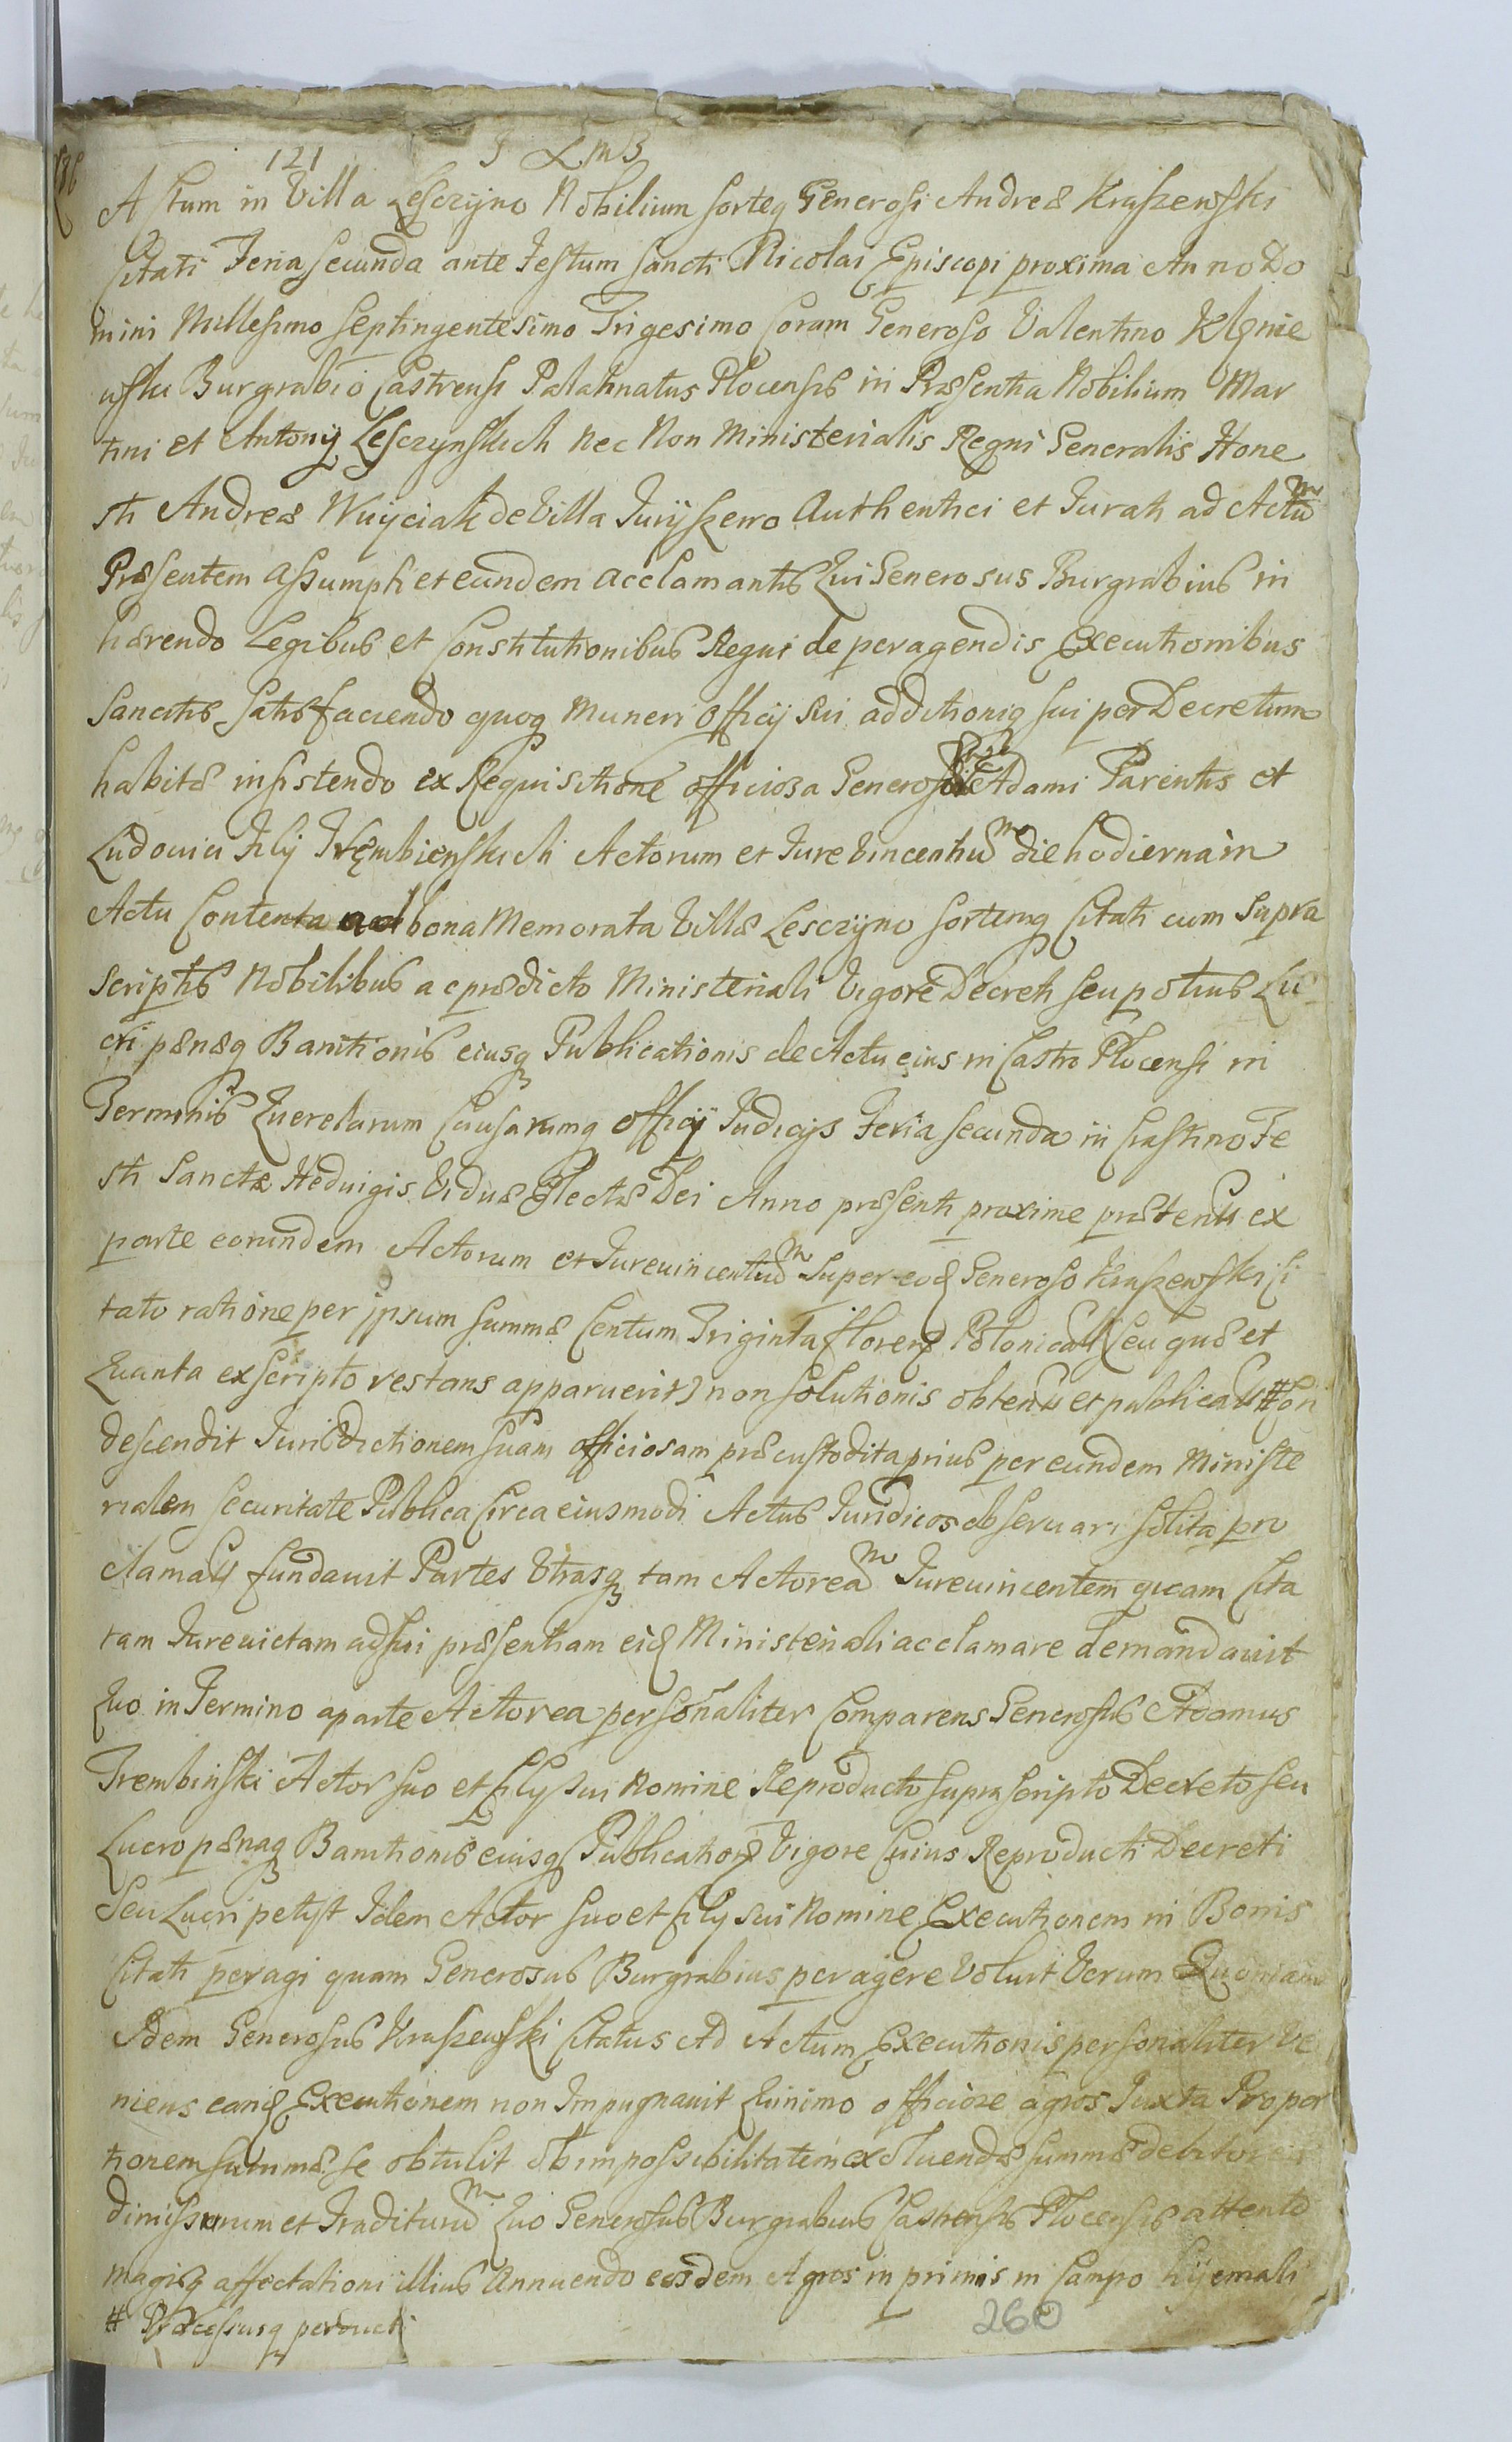 121 J L M B
Actum in Villa Lesczyno Nobilium sorteq Generosi Andreæ Kraszewski
Citati Feria secunda ante Festum Sancti Nicolai Episcopi proxima Anno Do
mini Millesimo Septingentesimo Trigesimo Coram Generoso Valentino
wski Burgrabio Castrensi Palatinatus Plocensis in Præsentia Nobilium Mar
tini et Antonij Lesczynskich nec Non Ministerialis Regni Generalis Hone
sti Andreæ Wuyciak de Villa Juryszewo Authentici et Jurati ad Actum
Præsentem assumpti et eundem acclamantis Qui Generosus Burgrabius in
hærendo Legibus et Constitutionibus Regni de peragendis Executionibus
sancitis satisfaciendo quoq Muneri officij sui additioniq sui per Decretum
habitæ insistendo ex Requisitione officiosa Generosor Adami Parentis et
Ludovici Filij Trębienskich Actorum et Jurevincentium die hodierna in
Actu Contenta ad bona Memorata Villæ Lesczyno sortemq Citati cum supra
scriptis Nobilibus ac prædicto Ministeriali Vigore Decreti seu potius Lu
cri pænæq Banitionis eiusq Publicationis de Actu eius in Castro Plocensi in
Terminis Querelarum Causarumq officij Judicijs Feria secunda in Crastino Fe
sti Sanctæ Hedvigis Viduæ Electæ Dei Anno præsenti proxime præteriti ex
parte eorundem Actorum et Jurevincentium super eod Generoso Kraszewski Ci
tato ratione per ipsum summæ Centum Triginta floren Polonical seu quæ et
Quanta ex scripto restans apparuerit non solutionis obtenti et publicati # Con
descendit Jurisdictionem suam officiosam præcustodita prius per eundem Ministe
rialem securitate Publica Circa eiusmodi Actus Juridicos observari solita pro
clamati fundavit Partes Utrasq tam Actoream Jurevincentem quam Cita
tam Jurevictam ad sui præsentiam eid Ministeriali acclamare demandavit
Quo in Termino a parte Actorea personaliter Comparens Generosus Adamus
Trembinski Actor suo et filij sui Nomine Reproducto suprascripto Decreto seu
Lucro pænaq Banitionis eiusq Publication Vigore Cuius Reproducti Decreti
seu Lucri petijt Idem Actor suo et filij sui Nomine Executionem in Bonis
Citati peragi quam Generosus Burgrabius peragere Voluit Verum Quoniam
Idem Generosus Kraszewski Citatus Ad Actum Executionis personaliter Ve
niens eand Executionem non Impugnavit Quinimo officiose agros Juxta Propor
tionem summæ se obtulit ob impossibilitatem exoluendæ summæ debitor
dimissurum et Traditurum Quo Generosus Burgrabius Castrensis Plocensis attento
magisq affectationi illius Annuendo eosdem Agros in primis in Campo hyemali
# Processusq perducti
260